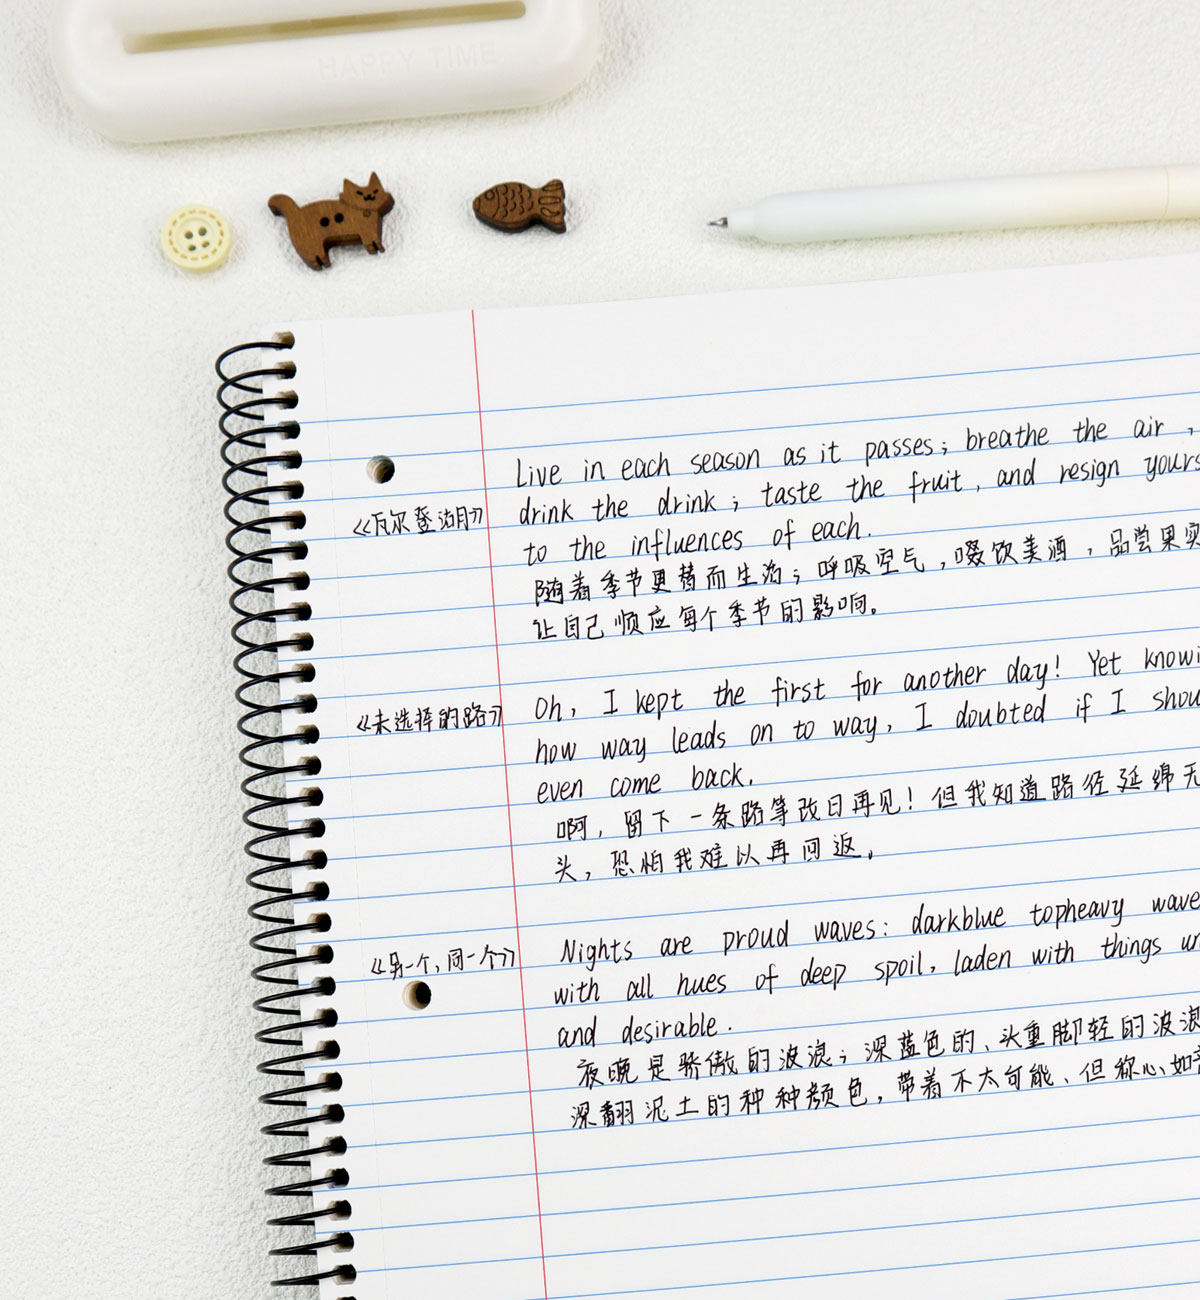 HAPPY TIME
Live in each season as it passes; breathe the air,
drink the drink; taste the fruit, and resign yours
《瓦尔登湖》
to the influences of each.
随着季节更替而生活；呼吸空气，啜饮美酒，品尝果实
让自己顺应每个季节的影响。
Oh, I kept the first for another day! Yet knowi
《未选择的路》
how way leads on to way, I doubted if I shou
even come back.
啊，留下一条路等改日再见！但我知道路径延绵无
头，恐怕我难以再回返。
Nights are proud waves: darkblue topheavy wave
《另一个，同一个》
with all hues of deep spoil, laden with things un
and desirable.
夜晚是骄傲的波浪；深蓝色的、头重脚轻的波浪
深翻泥土的种种颜色，带着不太可能、但称心如意